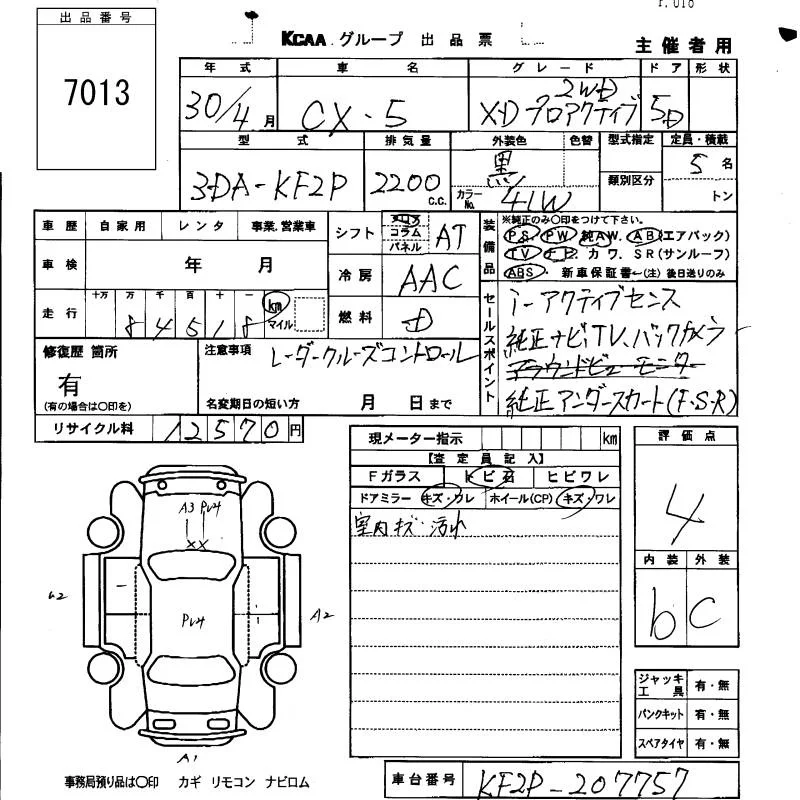 r.018
出品番号
7013
KCAA グループ 出品票
主催者用
年式 車名 グレード ドア 形状
30/4月 CX-5 XD プロアクティブ 2WD 5D
型式 排気量 外装色 色替 型式指定 定員・積載
3DA-KF2P 2200 c.c. 黒 カラーNo. 41W 類別区分 5名 トン
車歴 自家用 レンタ 事業.営業車
シフト コラム パネル AT
装備品
※純正のみ○印をつけて下さい。
PS. PW 純AW. AB(エアバック)
TV ナビ. カワ. SR(サンルーフ)
ABS. 新車保証書←(注) 後日送りのみ
車検 年 月
冷房 AAC
走行 十万 万 千 百 十 一 km マイル
84518
燃料 D
セールスポイント
i-アクティブセンス
純正ナビ,TV,バックカメラ
アラウンドビューモニター
純正アンダースカート(F・S・R)
修復歴 箇所
有
(有の場合は○印を)
注意事項 レーダークルーズコントロール
名変期日の短い方 月 日まで
リサイクル料 12570円
現メーター指示 km
【査定員記入】
Fガラス トビ石 ヒビワレ
ドアミラー キズ・ワレ ホイール(CP) キズ・ワレ
室内キズ・汚れ
評価点
4
内装 外装
b C
A3 PV4
XX
PV4
A2
A1
ジャッキ工具 有・無
パンクキット 有・無
スペアタイヤ 有・無
事務局預り品は○印 カギ リモコン ナビロム
車台番号 KF2P-207757